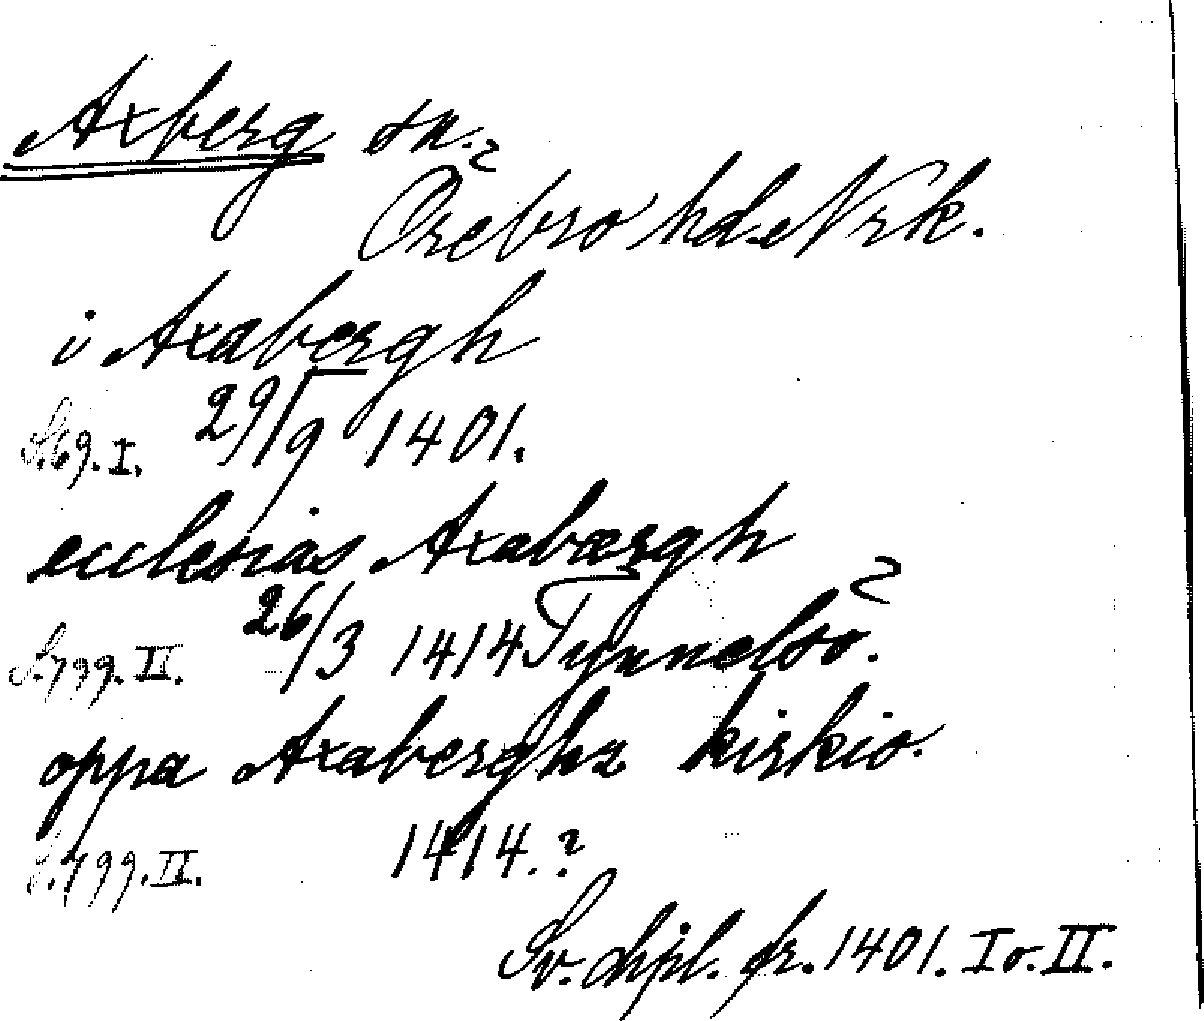 Axberg sn.
Örebro hd. Nrk.
i Axabergh
S. 69. I. 29/9 1401.
ecclesias Axabærgh
S. 799. II. 26/3 1414 Tynnelsö.
oppa Axaberghz kirkio.
S. 799. II. 1414.?
Sv. dipl. fr. 1401. I o. II.